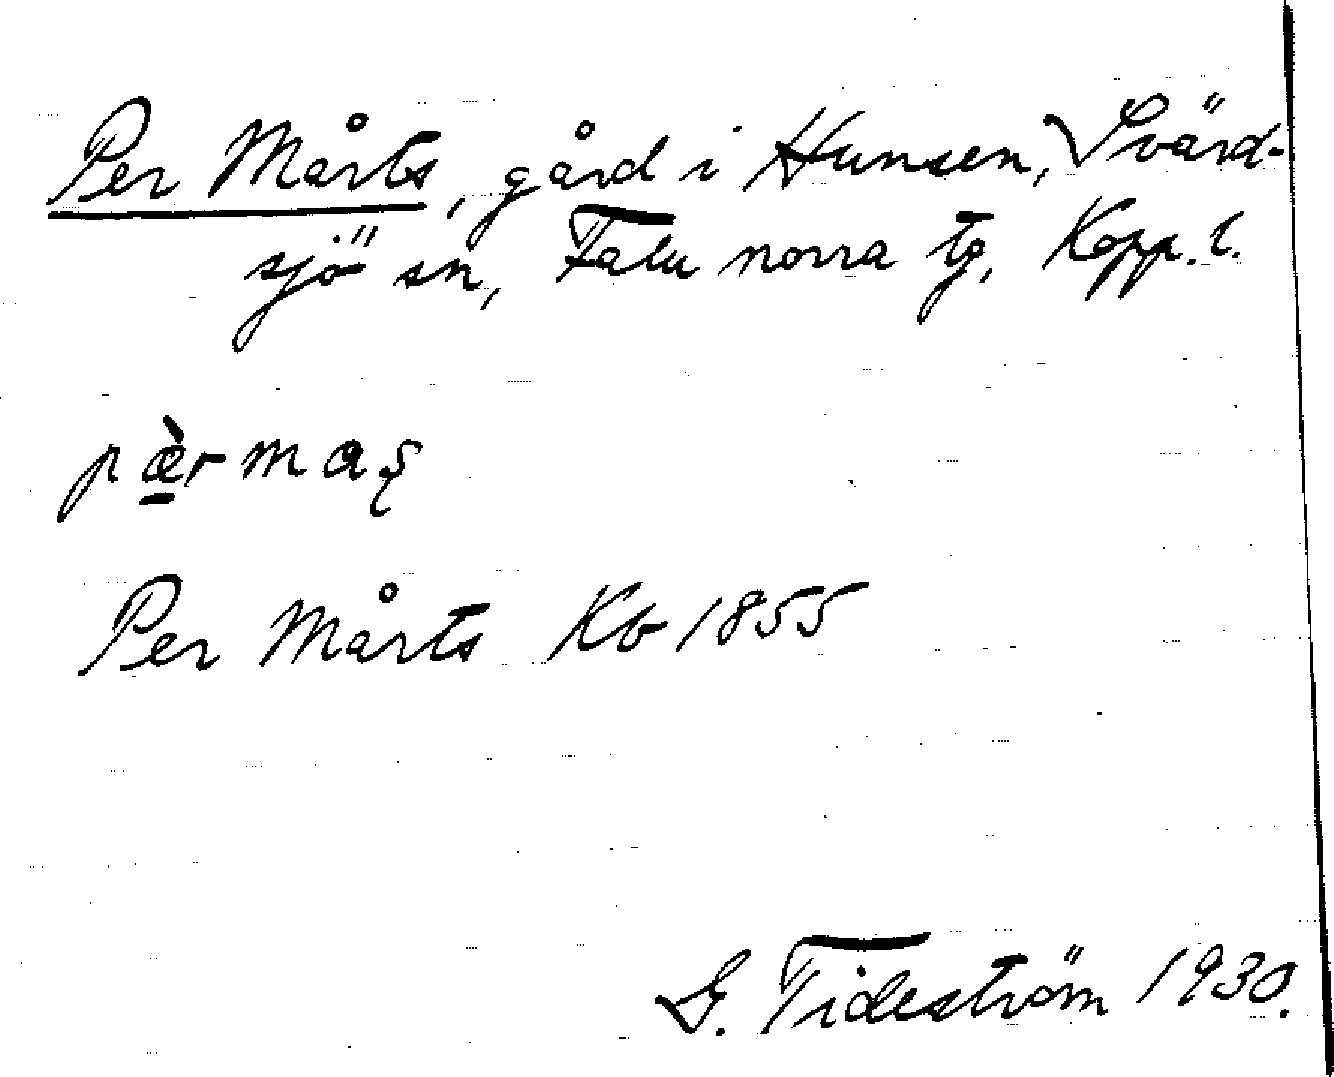 Per Mårts, gård i Hunsen, Svärd-
sjö sn, Falu norra tg, Kopp. l.
pæ̱̀rmaʂ
Per Mårts Kb 1855
G. Tideström 1930.